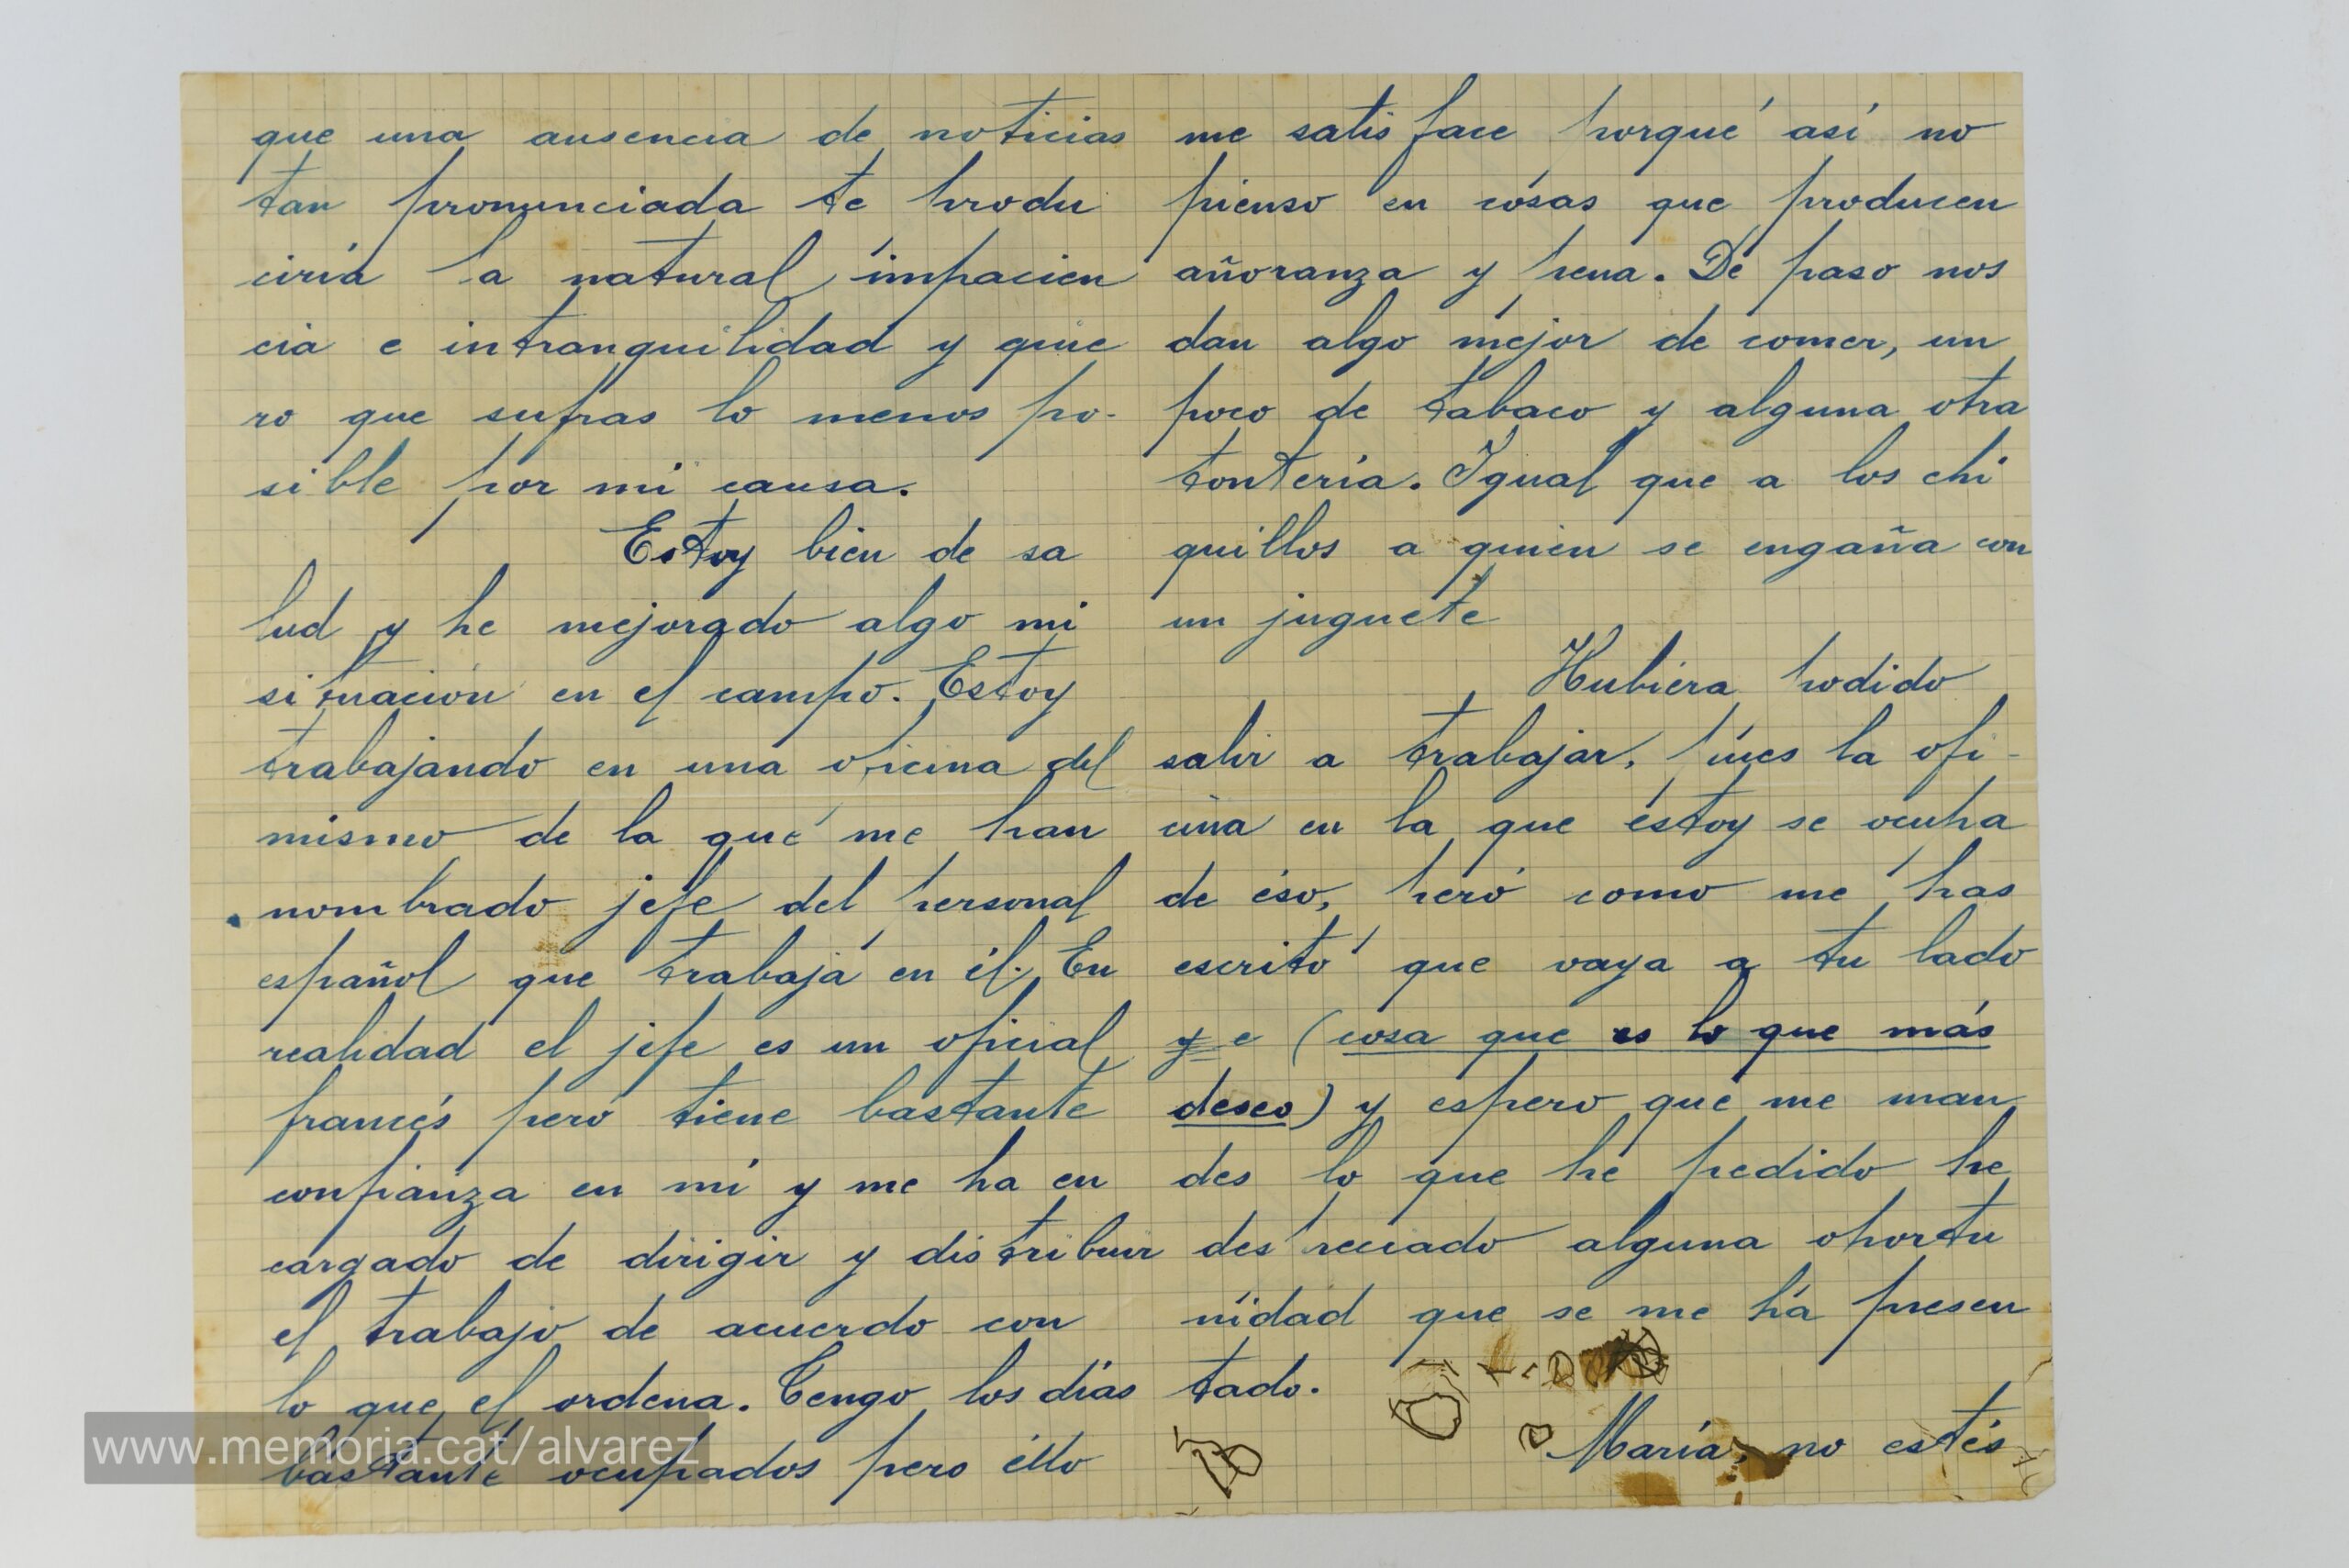 que una ausencia de noticias
tan pronunciada te produ
ciría la natural impacien
cia e intranquilidad y quie
ro que sufras lo menos po-
sible por mi causa.
Estoy bien de sa
lud y he mejorado algo mi
situación en el campo. Estoy
trabajando en una oficina del
mismo de la qué me han
nombrado jefe del personal
español que trabajá en él. En
realidad el jefe es un oficial
francés peró tiene bastante
confianza en mí y me ha en
cargado de dirigir y distribuir
el trabajo de acuerdo con
lo que el ordena. Tengo los días
bastante ocupados pero éllo
me satisface porqué así no
pienso en cósas que producen
añoranza y pena. De paso nos
dan algo mejor de comer, un
poco de tabaco y alguna otra
tontería. Igual que a los chi
quillos a quien se engaña con
un juguete
Hubiera podido
salir a trabajar, pues la ofi-
cina en la que éstoy se ocupa
de éso, peró como me has
escritó que vaya a tu lado
y e (cosa que es lo que más
deseo) y espero que me man
des lo que he pedido he
despreciado alguna oportu
nidad que se me há presen
tado.
María, no estés
www.memoria.cat/alvarez